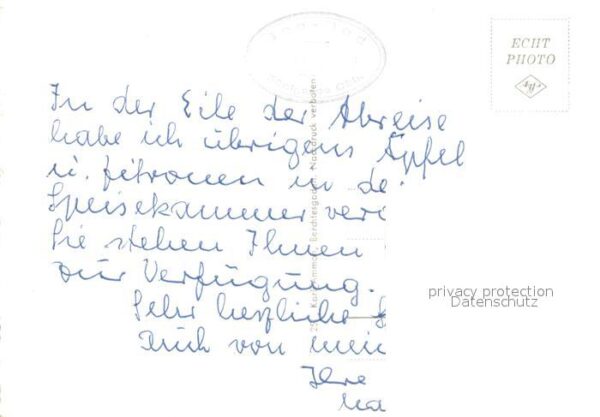 ECHT
PHOTO
In der Eile der Abreise
habe ich übrigens Äpfel
u. Zitronen in de
Speisekammer
Sie stehen Ihnen
zur Verfügung.
Sehr herzliche
Auch von mein
Ihre
Nachdruck verboten
Berchtesgaden
privacy protection
Datenschutz